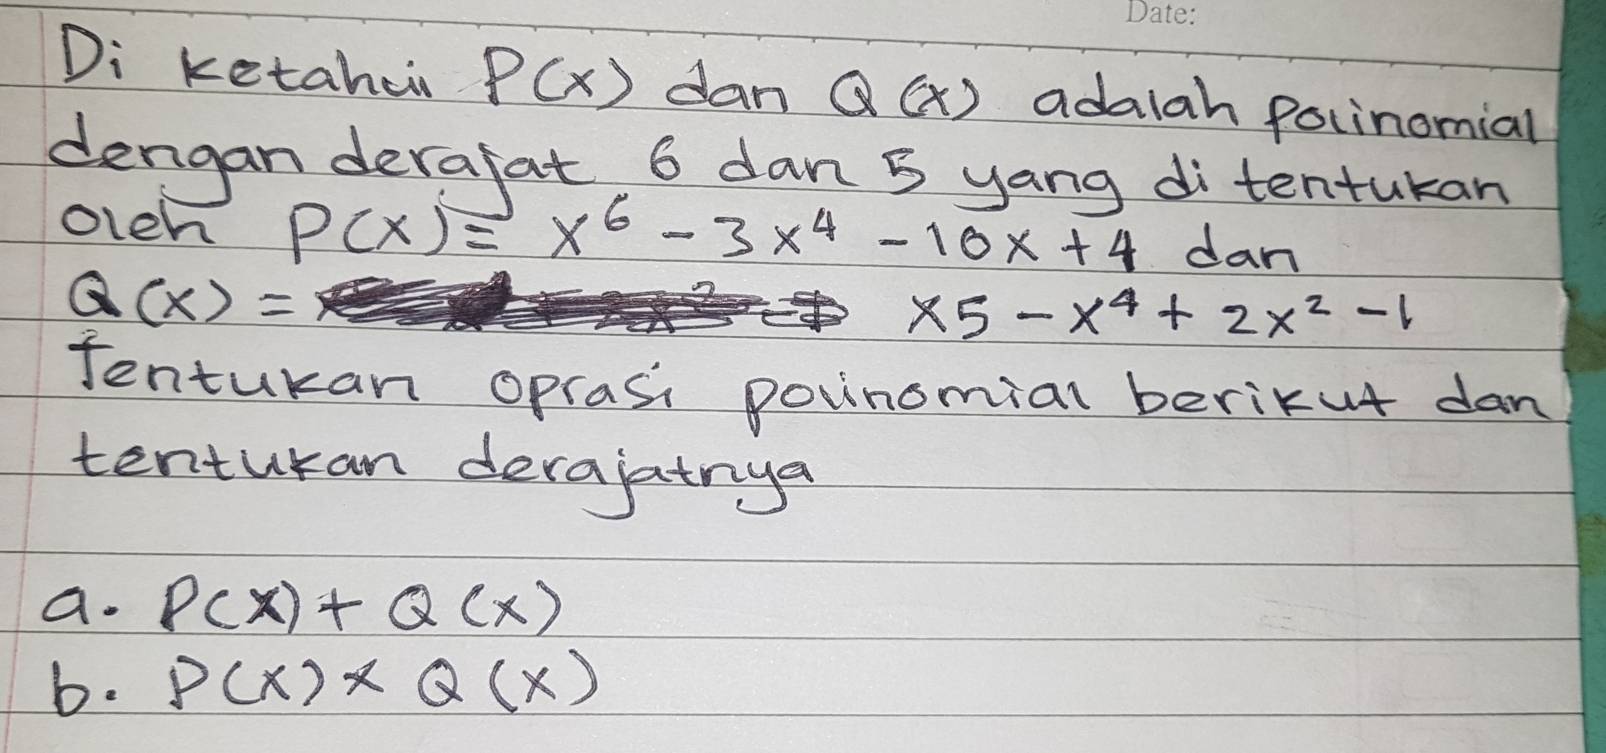 Date:
Di ketahui P(x) dan Q(x) adalah polinomial
dengan derajat 6 dan 5 yang di tentukan
oleh P(x) = x⁶ - 3x⁴ - 10x + 4 dan
Q(x) = x5 - x⁴ + 2x² - 1
Tentukan oprasi polinomial berikut dan
tentukan derajatnya
a. P(x) + Q(x)
b. P(x) × Q(x)